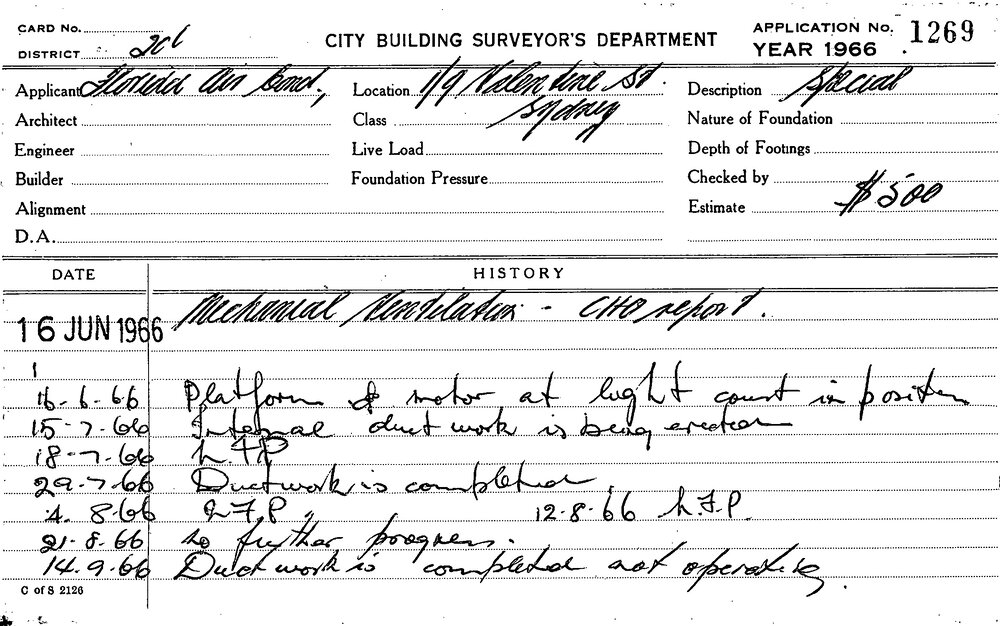 CARD No.
DISTRICT
CITY BUILDING SURVEYOR'S DEPARTMENT
APPLICATION No. 1269
YEAR 1966
Applicant Florida Air Cond.,
Location 1/9 Valentine St.
Sydney
Description Special
Architect
Class
Nature of Foundation
Engineer
Live Load
Depth of Footings
Builder
Foundation Pressure
Checked by
Alignment
Estimate $500
D.A.
DATE
HISTORY
16 JUN 1966 Mechanical Ventilation - CHO report.
16-6-66 Platform & motor at light court in position
15-7-66 Internal duct work is being erected
18-7-66 N.F.P
29-7-66 Ductwork is completed
4. 8-66 N.F.P. 12-8-66 N.F.P.
21-8-66 No further progress.
14.9.66 Ductwork is completed not operating.
C of S 2126